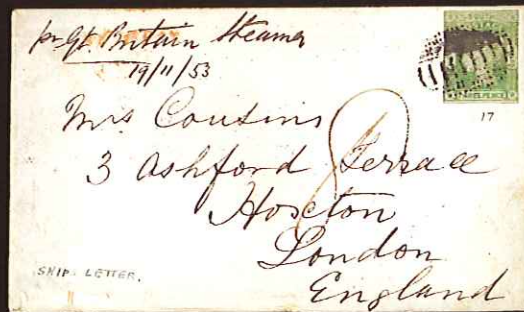 pr Gt Britain Steamer
19/11/53
17
Mrs Cousins
3 Ashford Terrace
Hoxton
London
England
SHIP LETTER.